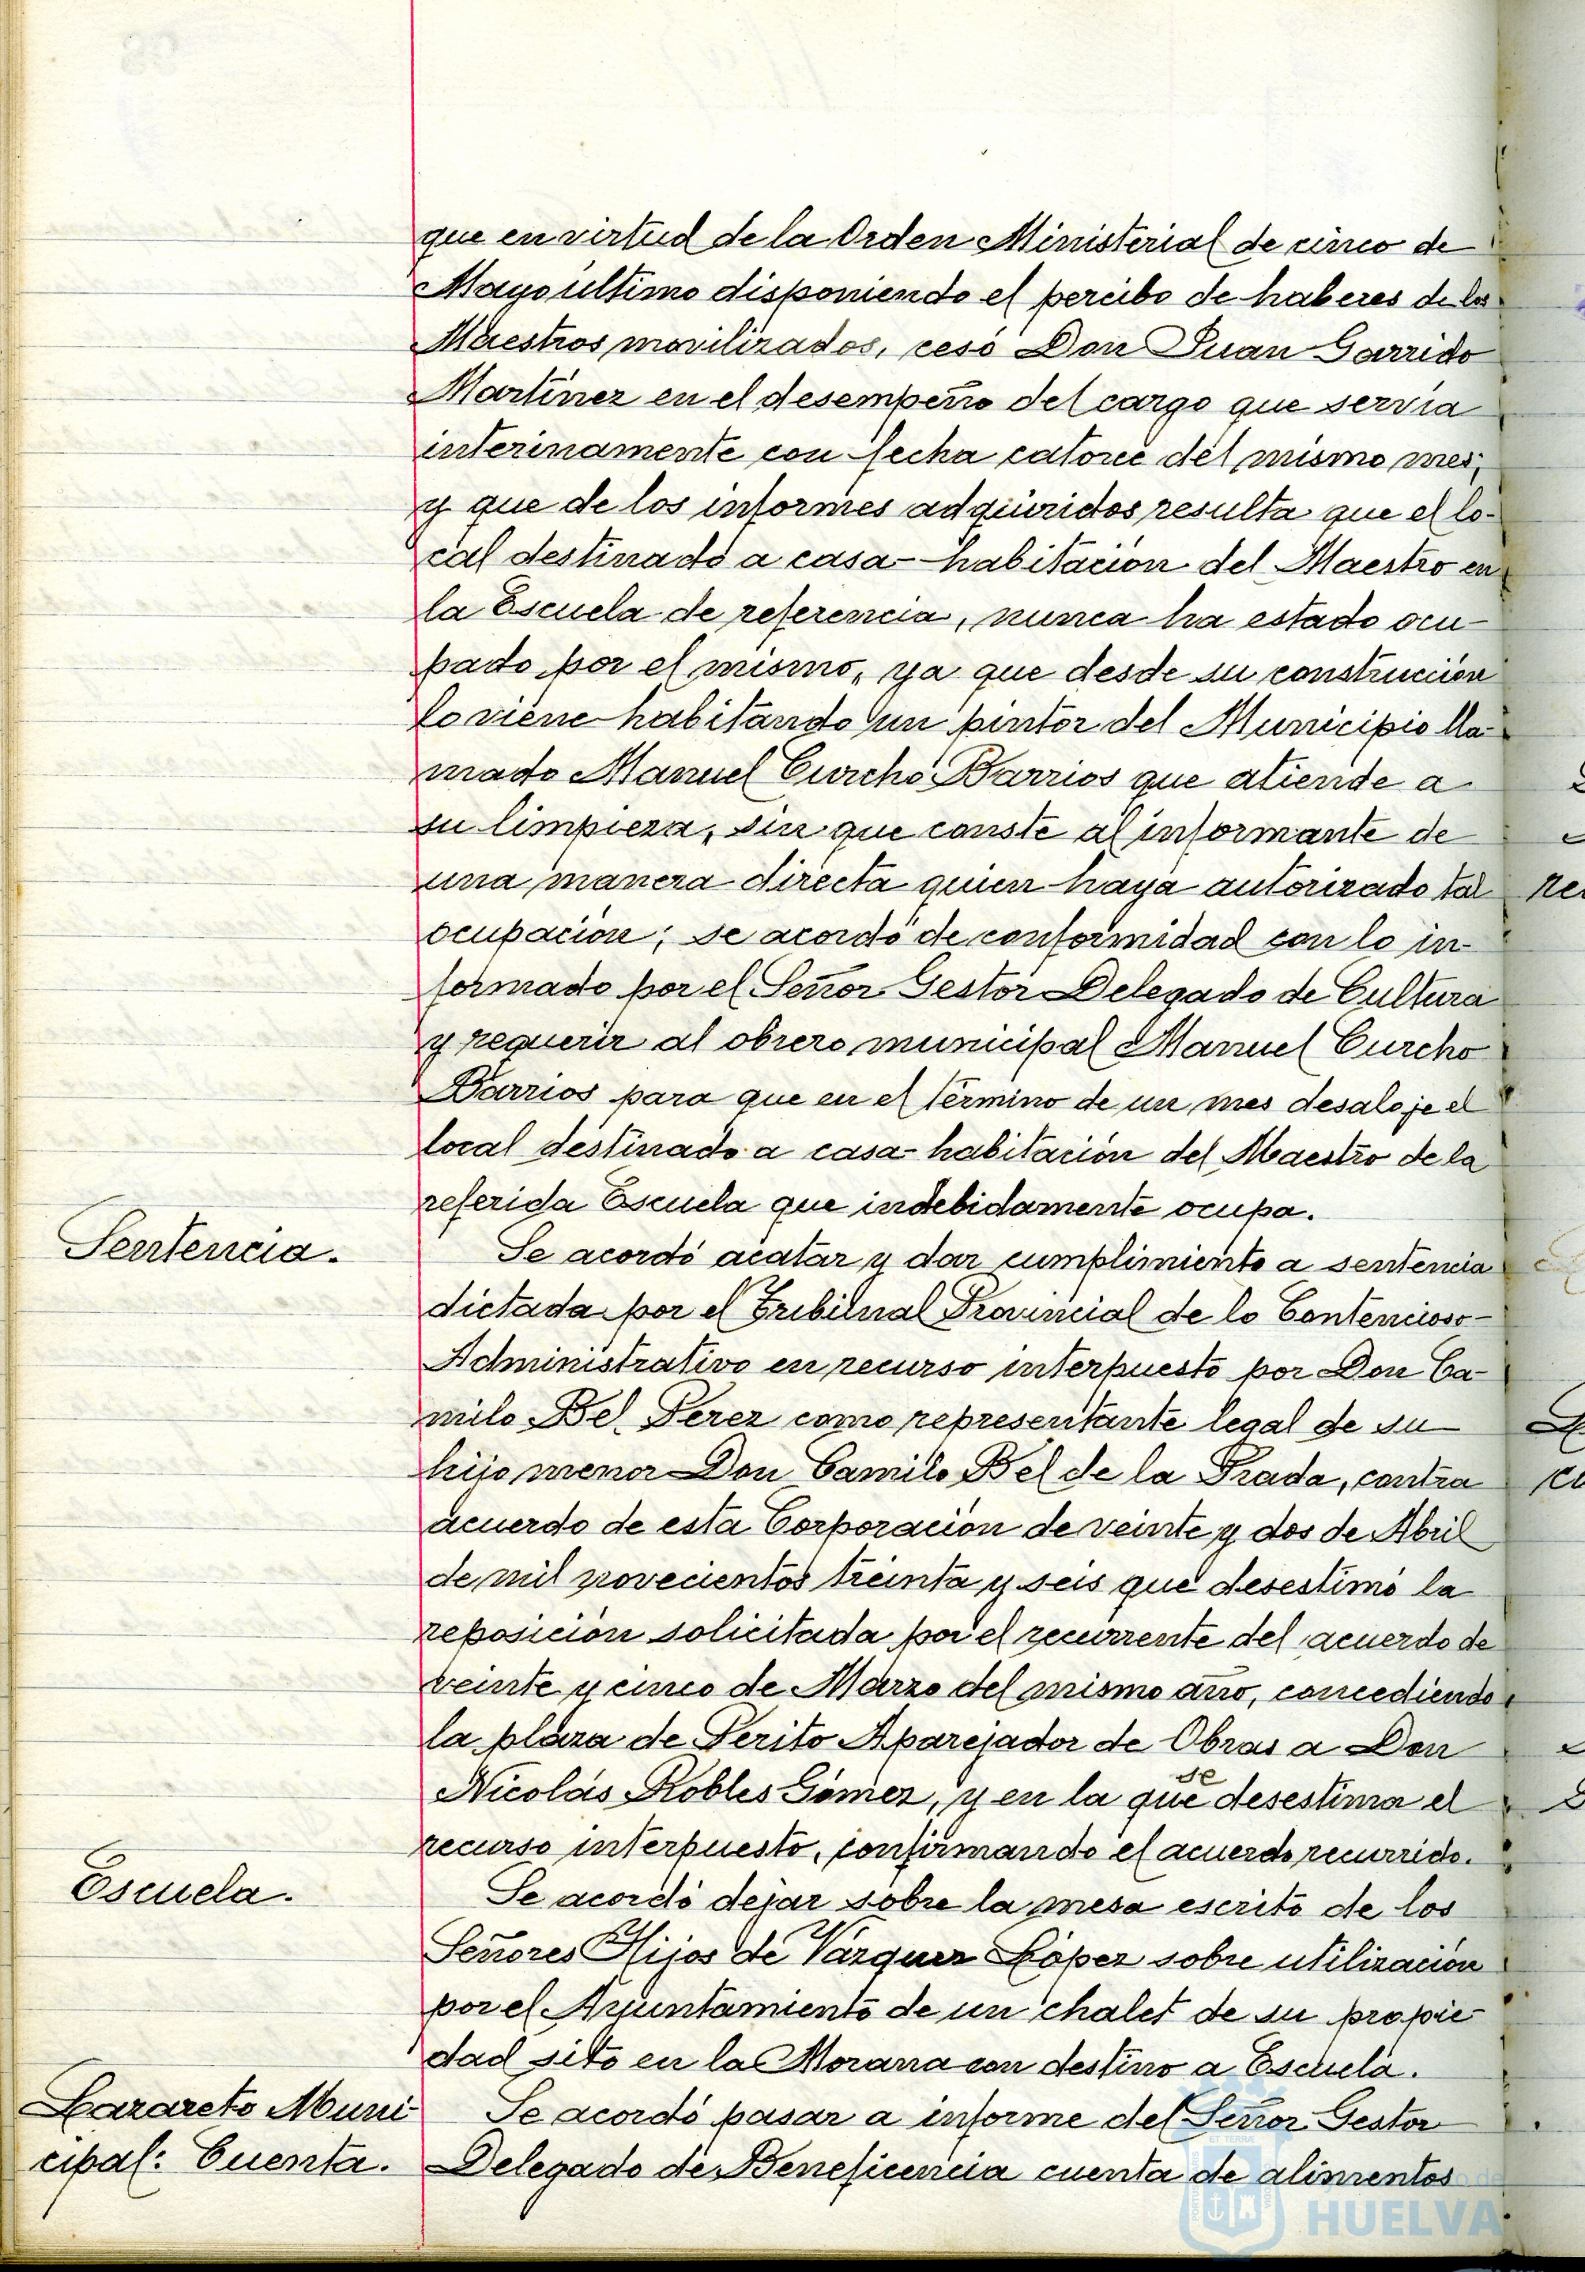 que en virtud de la Orden Ministerial de cinco de
Mayo último disponiendo el percibo de haberes de los
Maestros movilizados, cesó Don Juan Garrido
Martínez en el desempeño del cargo que servía
interinamente con fecha catorce del mismo mes;
y que de los informes adquiridos resulta que el lo-
cal destinado a casa-habitación del Maestro en
la Escuela de referencia, nunca ha estado ocu-
pado por el mismo, ya que desde su construcción
lo viene habitando un pintor del Municipio lla-
mado Manuel Curcho Barrios que atiende a
su limpieza, sin que conste al informante de
una manera directa quien haya autorizado tal
ocupación; se acordó de conformidad con lo in-
formado por el Señor Gestor Delegado de Cultura
y requerir al obrero municipal Manuel Curcho
Barrios para que en el término de un mes desaloje el
local destinado a casa-habitación del Maestro de la
referida Escuela que indebidamente ocupa.
Sentencia.
Se acordó acatar y dar cumplimiento a sentencia
dictada por el Tribunal Provincial de lo Contencioso-
Administrativo en recurso interpuesto por Don Ca-
milo Bel Perez como representante legal de su
hijo menor Don Camilo Bel de la Prada, contra
acuerdo de esta Corporación de veinte y dos de Abril
de mil novecientos treinta y seis que desestimó la
reposición solicitada por el recurrente del acuerdo de
veinte y cinco de Marzo del mismo año, concediendo
la plaza de Perito Aparejador de Obras a Don
Nicolás Robles Gómez, y en la que se desestima el
recurso interpuesto, confirmando el acuerdo recurrido.
Escuela.
Se acordó dejar sobre la mesa escrito de los
Señores Hijos de Vázquez López sobre utilización
por el Ayuntamiento de un chalet de su propie-
dad sito en la Morana con destino a Escuela.
Lazareto Muni-
cipal: Cuenta.
Se acordó pasar a informe del Señor Gestor
Delegado de Beneficencia cuenta de alimentos
HUELVA